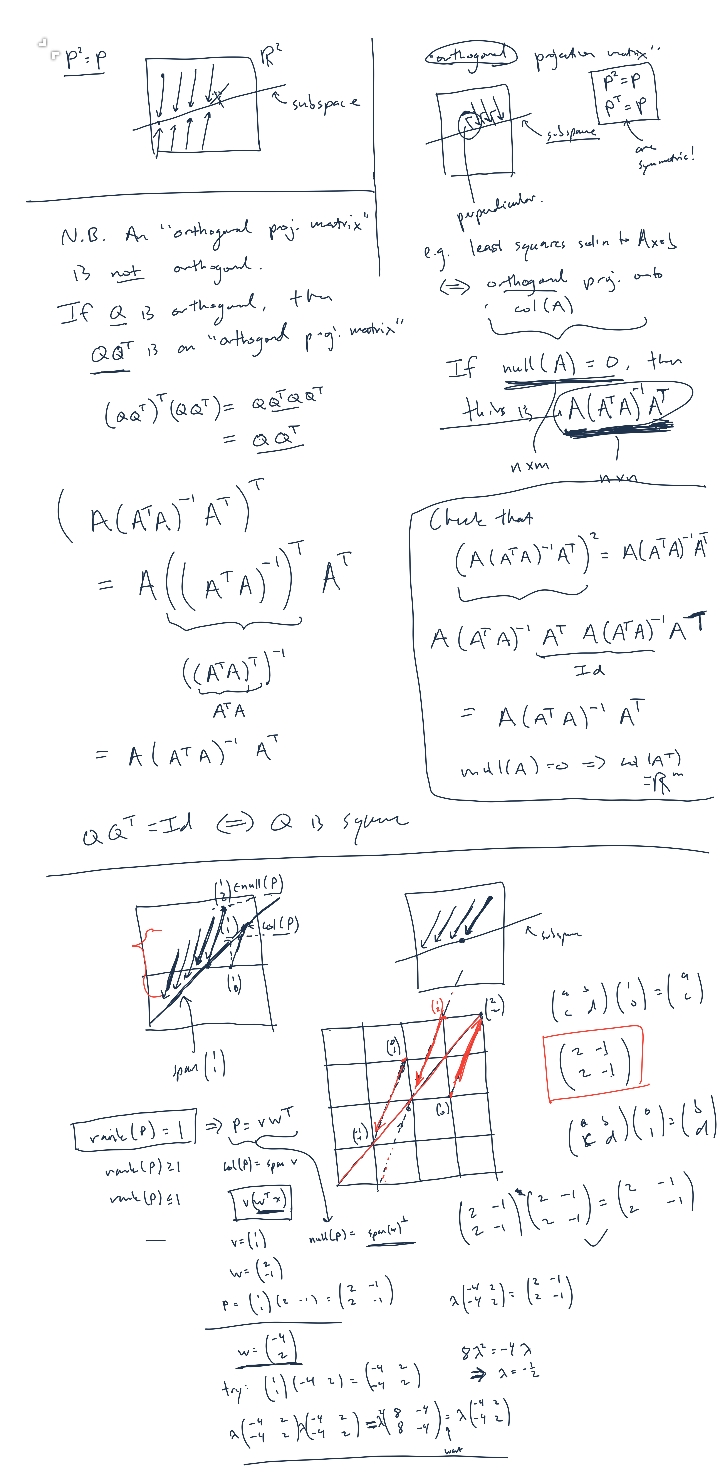 P² = P
ℝ²
subspace
"orthogonal projection matrix"
P² = P
Pᵀ = P
are symmetric!
subspace
perpendicular.
N.B. An "orthogonal proj. matrix"
is not orthogonal.
If Q is orthogonal, then
QQᵀ is an "orthogonal proj. matrix"
(QQᵀ)ᵀ(QQᵀ) = QQᵀQQᵀ
= QQᵀ
e.g. least squares soln to Ax=b
⟺ orthogonal proj. onto
col(A)
If null(A) = 0, then
this is A(AᵀA)⁻¹Aᵀ
n×m
n×n
(A(AᵀA)⁻¹Aᵀ)ᵀ
= A((AᵀA)⁻¹)ᵀ Aᵀ
((AᵀA)ᵀ)⁻¹
AᵀA
= A(AᵀA)⁻¹ Aᵀ
Check that
(A(AᵀA)⁻¹Aᵀ)² = A(AᵀA)⁻¹Aᵀ
A(AᵀA)⁻¹ Aᵀ A(AᵀA)⁻¹Aᵀ
Id
= A(AᵀA)⁻¹ Aᵀ
null(A)=0 => col(Aᵀ)
=ℝᵐ
QQᵀ = Id ⟺ Q is square
(1 2) ∈ null(P)
(1 1) ∈ col(P)
(1 0)
span (1 1)
subspace
(1 2)
(2 2)
(0 1)
(1 0)
(-1 -1)
(a b; c d)(1 0) = (a c)
(2 -1; 2 -1)
(a b; c d)(0 1) = (b d)
rank(P) = 1 => P = vwᵀ
rank(P) ≥ 1
col(P) = span v
rank(P) ≤ 1
v(wᵀx)
null(P) = span(w)^⊥
(2 -1; 2 -1)(2 -1; 2 -1) = (2 -1; 2 -1)
v = (1 1)
w = (2 -1)
P = (1 1)(2 -1) = (2 -1; 2 -1)
λ(-4 2; -4 2) = (2 -1; 2 -1)
w = (-4 2)
8λ² = -4λ
=> λ = -½
try: (1 1)(-4 2) = (-4 2; -4 2)
λ(-4 2; -4 2)λ(-4 2; -4 2) = λ²(8 -4; 8 -4) = λ(-4 2; -4 2)
want